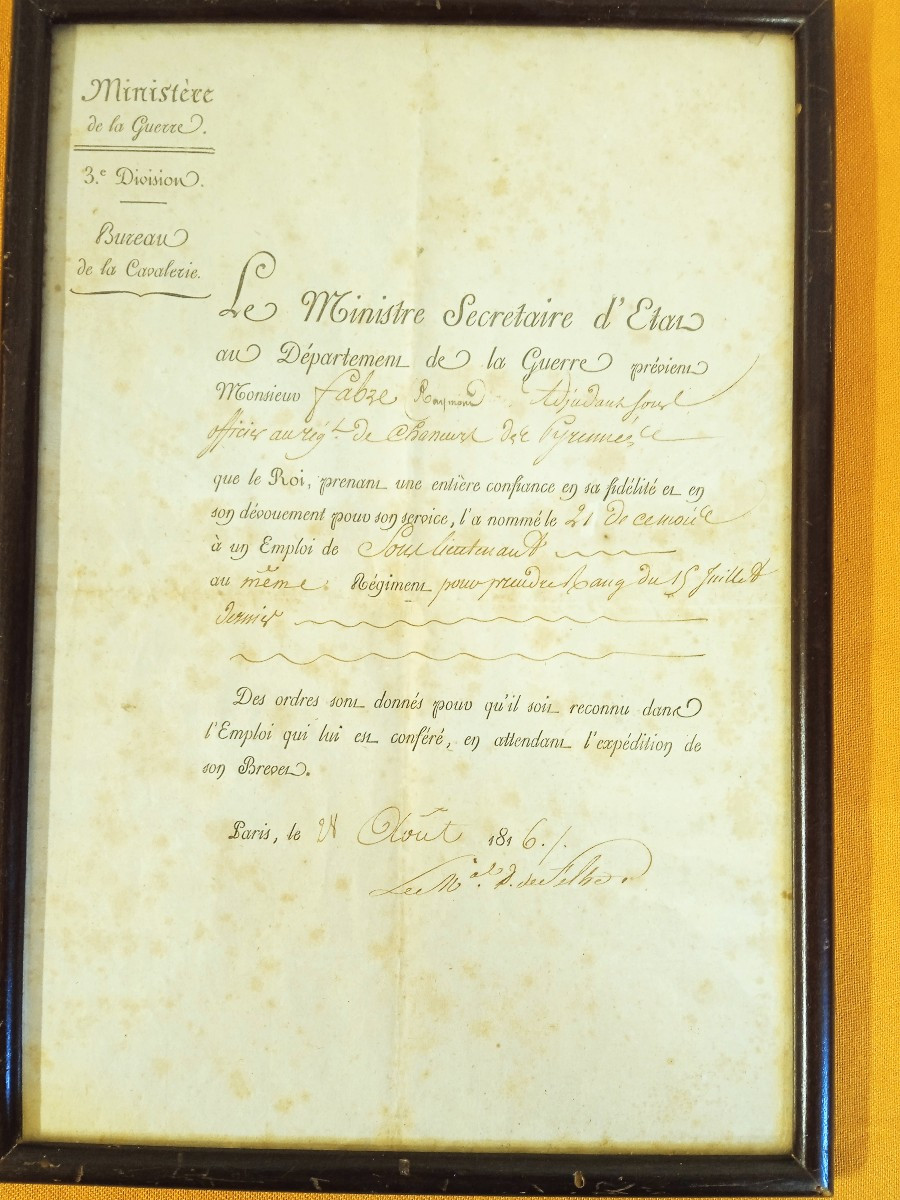 Ministère
de la Guerre.
3.e Division.
Bureau
de la Cavalerie.
Le Ministre Secretaire d'Etat
au Département de la Guerre prévient
Monsieur fabre Raymond Adjudant sous
officier au rég.t de Chasseurs des Pyrennées
que le Roi, prenant une entière confiance en sa fidélité et en
son dévouement pour son service, l'a nommé le 21 de ce mois
à un Emploi de Sous lieutenant
au même Régiment pour prendre Rang du 15 Juillet
dernier
Des ordres sont donnés pour qu'il soit reconnu dans
l'Emploi qui lui est conféré, en attendant l'expédition de
son Brevet.
Paris, le 28 Août 1816./.
Le M.al D. de feltre.